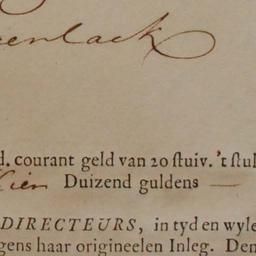 enlack
d. courant geld van 20 ſtuiv. 't ſtuk
Tien Duizend guldens —
DIRECTEURS, in tyd en wyle
gens haar origineelen Inleg. Den